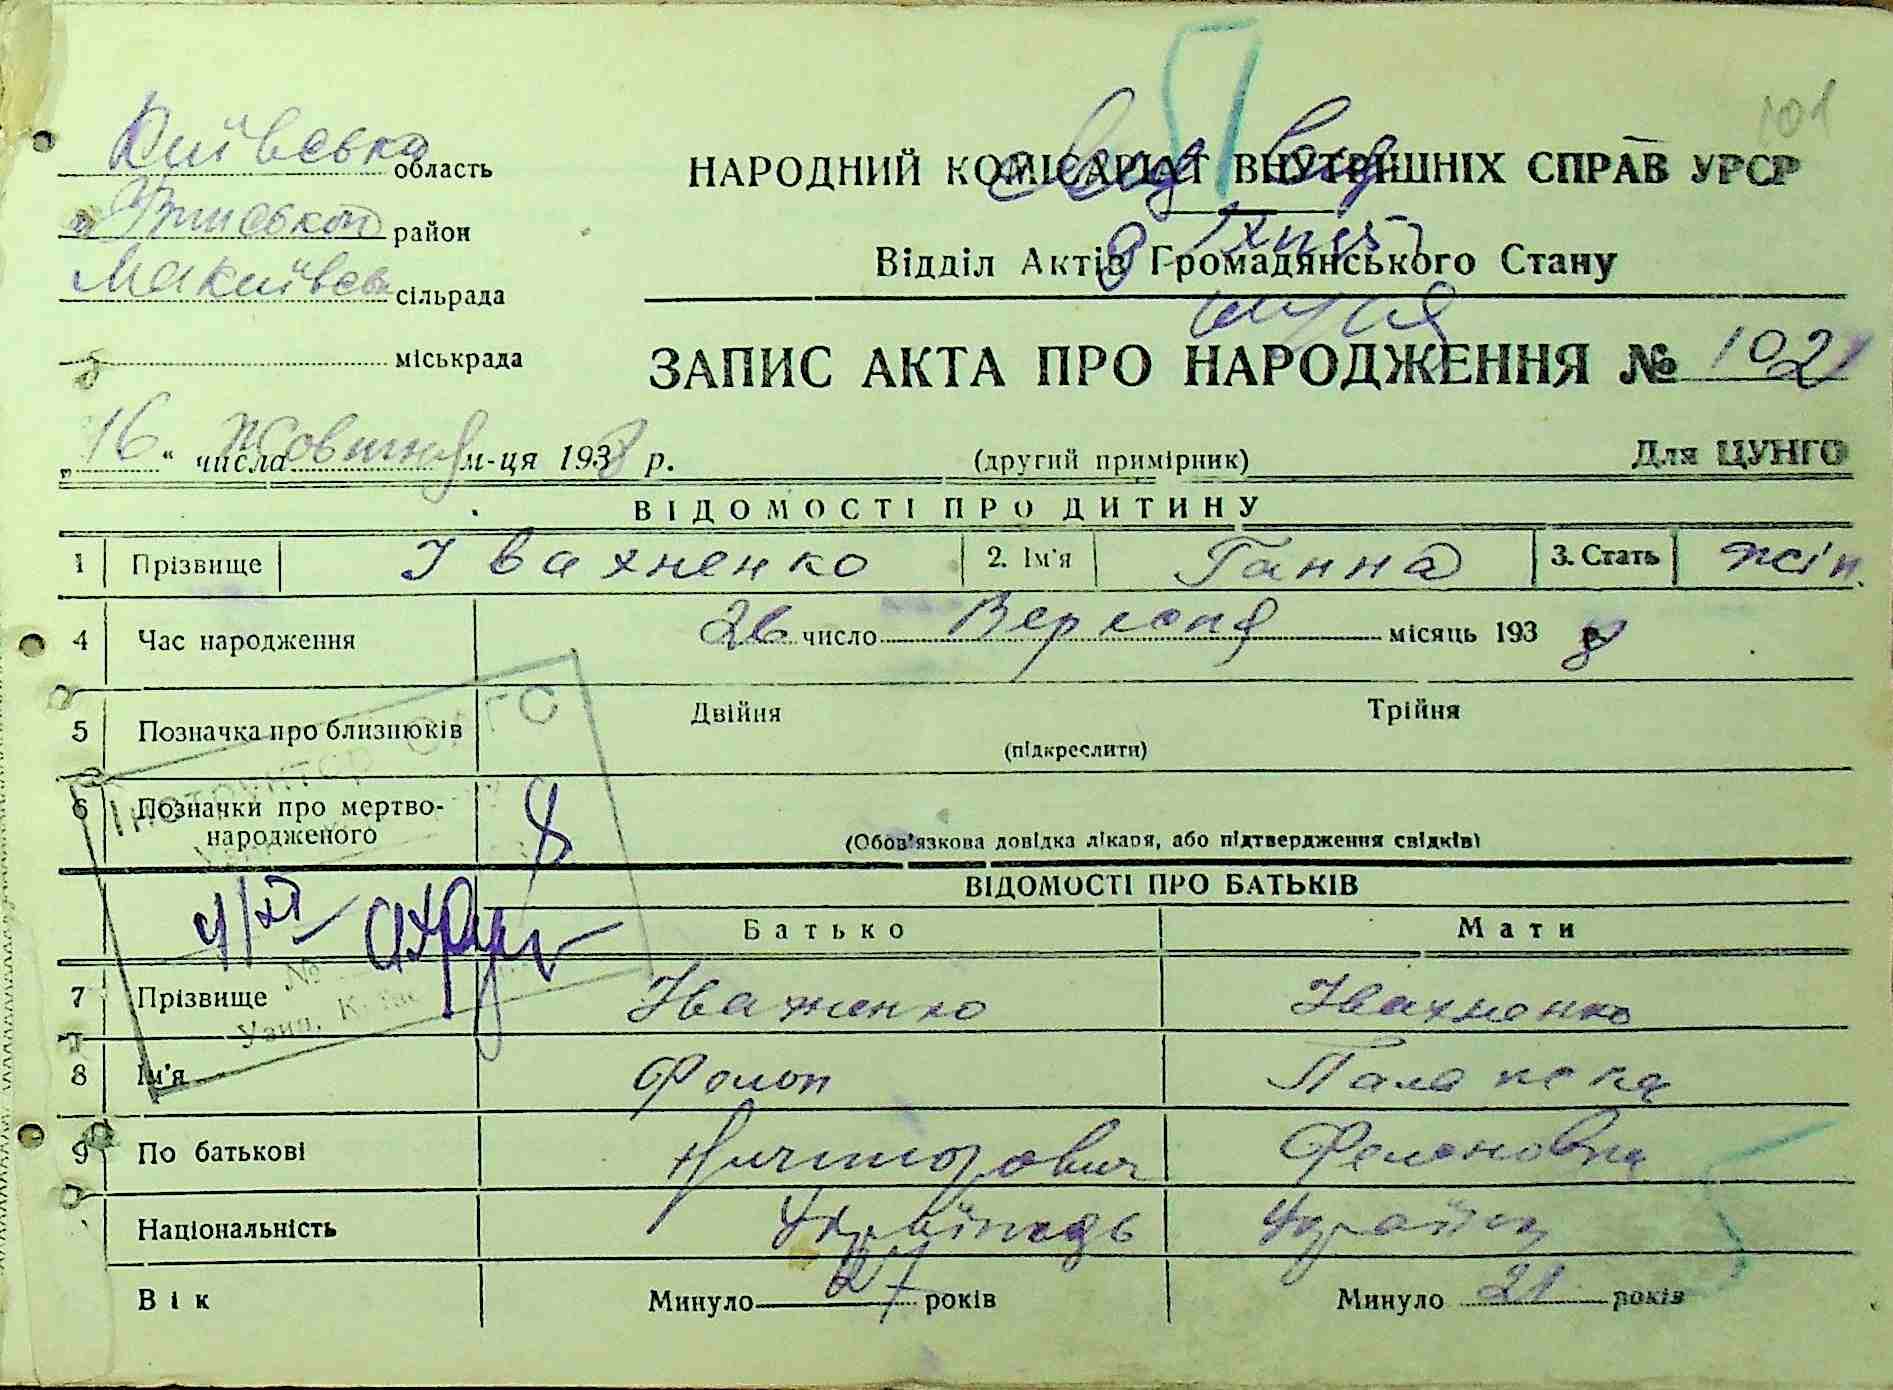 Київська область
район
Макиївсь сільрада
міськрада
101
НАРОДНИЙ КОМІСАРІАТ ВНУТРІШНІХ СПРАВ УРСР
Відділ Актів Громадянського Стану
ЗАПИС АКТА ПРО НАРОДЖЕННЯ № 102
„16“ числа Жовтня м-ця 1938 р.
(другий примірник)
Для ЦУНГО
ВІДОМОСТІ ПРО ДИТИНУ
1 Прізвище Івахненко 2. Ім'я Ганна 3. Стать жін.
4 Час народження 26 число Вересня місяць 1938 р.
5 Позначка про близнюків Двійня Трійня
(підкреслити)
6 Позначки про мертво-
народженого
(Обов'язкова довідка лікаря, або підтвердження свідків)
Інструктор ОАГС
ВІДОМОСТІ ПРО БАТЬКІВ
Батько Мати
7 Прізвище Іваженко Івахненко
8 Ім'я
9 По батькові
Національність Українець
Вік Минуло 27 років Минуло 21 років